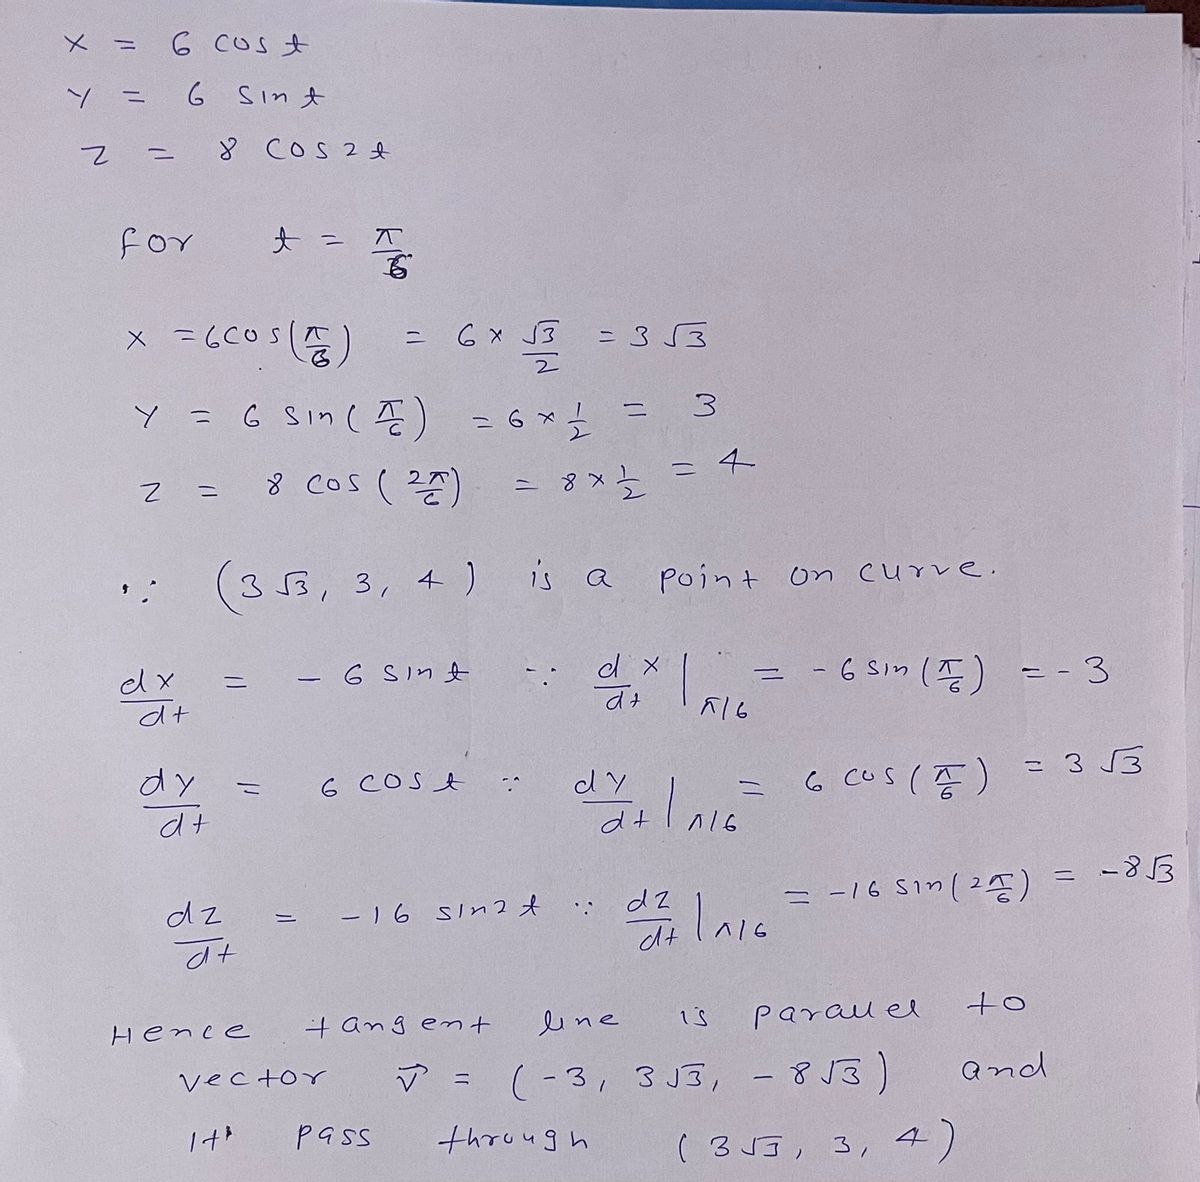 x = 6 cos t
y = 6 sin t
z = 8 cos 2t
for t = π/6
x = 6cos(π/6) = 6 × √3/2 = 3√3
y = 6 sin(π/6) = 6 × 1/2 = 3
z = 8 cos(2π/6) = 8 × 1/2 = 4
∵ (3√3, 3, 4) is a point on curve.
dx/dt = - 6 sin t ∵ dx/dt |π/6 = - 6 sin(π/6) = - 3
dy/dt = 6 cos t ∵ dy/dt |π/6 = 6 cos(π/6) = 3√3
dz/dt = -16 sin2t ∵ dz/dt |π/6 = -16 sin(2π/6) = -8√3
Hence tangent line is parallel to
vector v⃗ = (-3, 3√3, -8√3) and
it pass through (3√3, 3, 4)